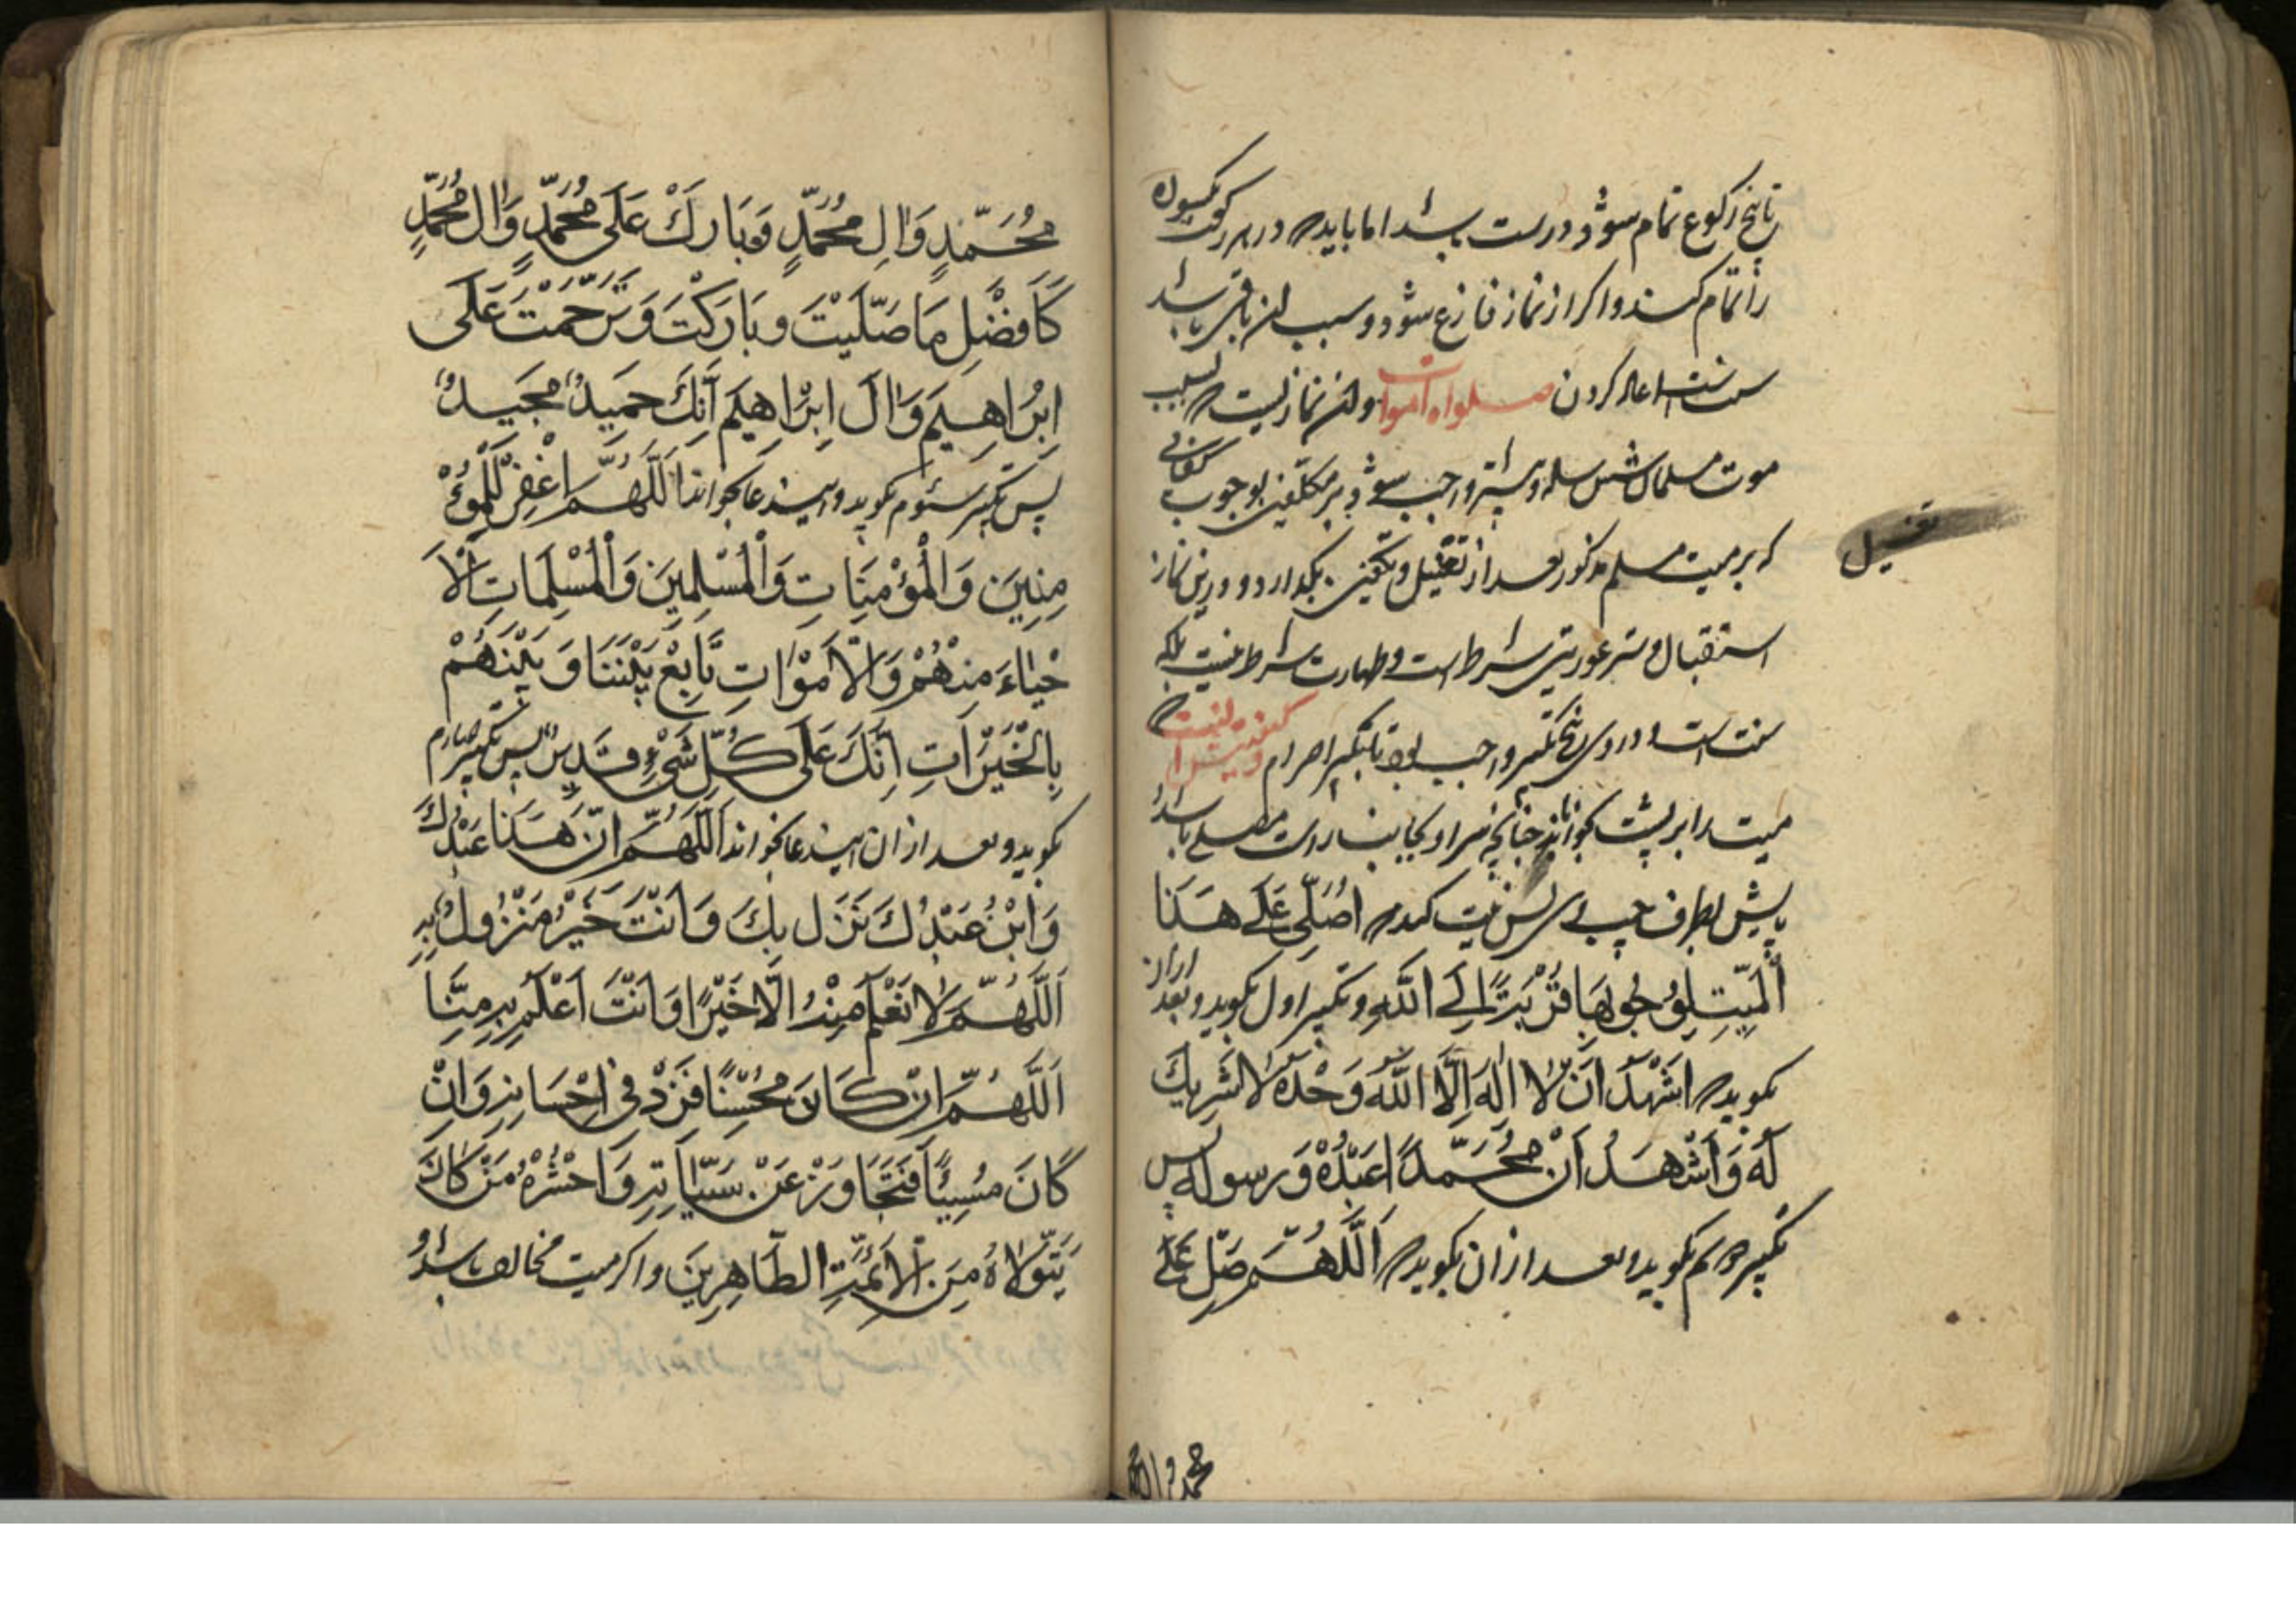 تا پنج رکوع تمام شود و درست باشد اما باید که در هر رکعت یکسوره
را تمام کند و اگر از نماز فارغ شود و سبب آن باقی باشد
سنت است اعاده کردن صلواه اموات و آن نمازیست که بسبب
موت مسلمان شش ساله و بیشتر واجب شود بر مکلفین بوجوب کفائی
که بر میت مسلم مذکور بعد از تغسیل و تکفین بگذارد و درین نماز
تغسیل
استقبال و ستر عورتین شرط است و طهارت شرط نیست بلکه
سنت است و در وی پنج تکبیر واجب بود با تکبیر احرام کیفیت آنست که
میت را بر پشت بخوابانند چنانچه سر او بجانب راست مصلی باشد
پایش بطرف چپ وی پس نیت کند که اُصَلّی عَلی هَذَا
اَلْمَیّتِ لِوُجُوبِهَا قُرْبَتًا اِلَی اللّهِ و تکبیر اول بکوید و بعد ازان
بکوید که اَشْهَدُ اَنْ لَا اِلَهَ اِلَّا اللّهُ وَحْدَهُ لَا شَرِیكَ
لَهُ وَ اَشْهَدُ اَنَّ مُحَمَّدًا عَبْدُهُ وَ رسوله پس
تکبیر دویم بکوید و بعد ازان بکوید که اَللَّهُمَّ صَلِّ عَلَی
محمد و ال محمد
مُحَمَّدٍ وَ الِ مُحَمَّدٍ وَ بَارِكْ عَلَی مُحَمَّدٍ وَ الِ مُحَمَّدٍ
كَاَفْضَلِ مَا صَلَّیْتَ وَ بَارَكْتَ وَ تَرَحَّمْتَ عَلَی
اِبْرَاهِیمَ وَ الَ اِبْرَاهِیمَ اَنَّكَ حَمِیدٌ مَجِیدٌ
پس تکبیر سئوم بکوید و این دعا بخواند اَللَّهُمَّ اغْفِرْ لِلْمُؤْ
مِنِینَ وَ الْمُؤْمِنَاتِ وَ الْمُسْلِمِینَ وَ الْمُسْلِمَاتِ اَلْاَ
حْیَاءِ مِنْهُمْ وَ الْاَمْوَاتِ تَابِعْ بَیْنَنَا وَ بَیْنَهُمْ
بِالْخَیْرَاتِ اِنَّكَ عَلَی كُلِّ شَیْءٍ قَدِیرٌ پس تکبیر چهارم
بکوید و بعد از ان این دعا بخواند اَللَّهُمَّ اِنَّ هَذَا عَبْدُكَ
وَ ابْنُ عَبْدِكَ نَزَلَ بِكَ وَ اَنْتَ خَیْرُ مَنْزُولٍ بِهِ
اَللَّهُمَّ لَا نَعْلَمُ مِنْهُ اِلَّا خَیْرًا وَ اَنْتَ اَعْلَمُ بِهِ مِنَّا
اَللَّهُمَّ اِنْ كَانَ مُحْسِنًا فَزِدْ فِی اِحْسَانِهِ وَ اِنْ
كَانَ مُسِیئًا فَتَجَاوَزْ عَنْ سَیِّاَتِهِ وَ احْشُرْهُ مَنْ كَانَ
یَتَوَلَّاهُ مِنَ الْاَئِمَّتِ الطَّاهِرِینَ و اکر میت مخالف باشد و